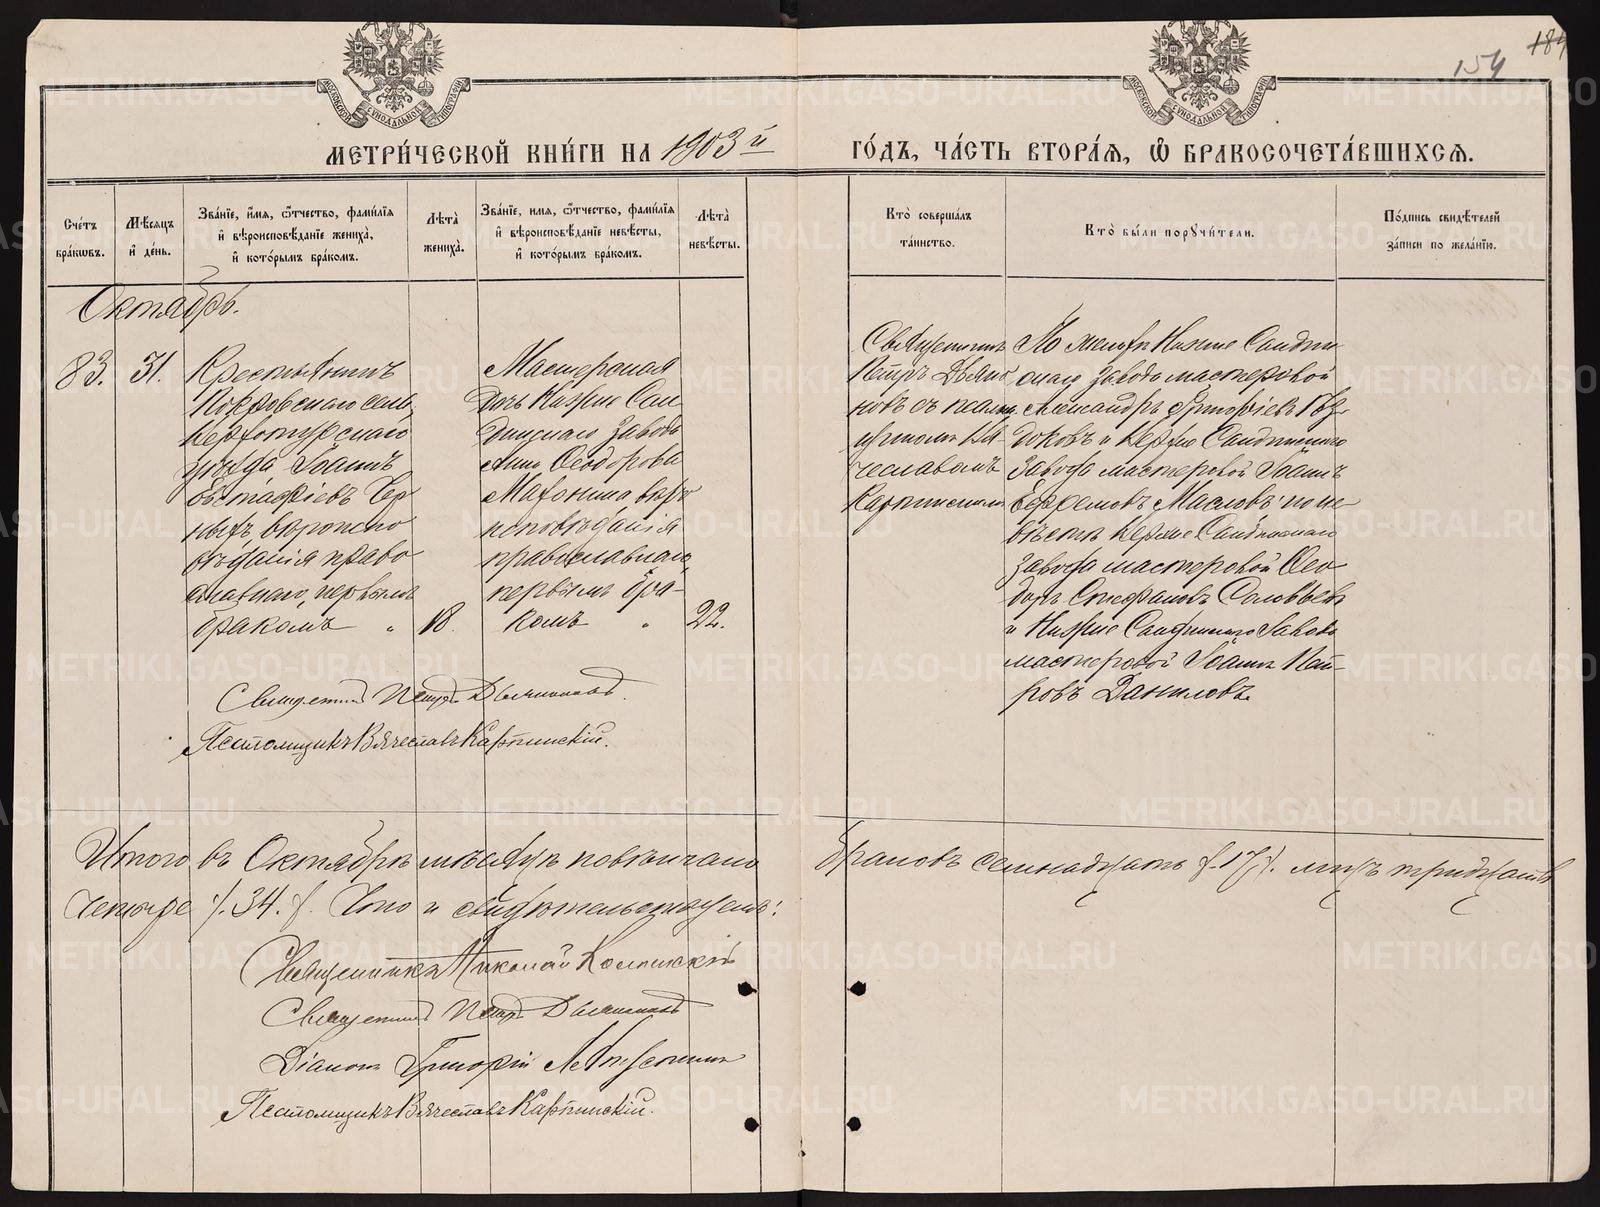 154
184
МОСКОВСКОЙ СУНОДАЛЬНОЙ ТИПОГРАФІИ
МОСКОВСКОЙ СУНОДАЛЬНОЙ ТИПОГРАФІИ
МЕТРИ́ЧЕСКОЙ КНИ́ГИ НА 1903й ГО́ДЪ, ЧА́СТЬ ВТОРА́Я, Ѽ БРАКОСОЧЕТА́ВШИХСЯ.
Сче́тъ бра́ковъ.
Мѣ́сяцъ и де́нь.
Зва́ніе, и́мя, ѻ҆́тчество, фами́лія
и҆ вѣроисповѣ́даніе жениха̀,
и҆ кото́рымъ бра́комъ.
Лѣта̀ жениха̀.
Зва́ніе, имя, ѻ҆́тчество, фами́лія
и҆ вѣроисповѣ́даніе невѣ́сты,
и҆ кото́рымъ бра́комъ.
Лѣта̀ невѣ́сты.
Кто̀ соверша́лъ
та́инство.
Кто̀ бы́ли порꙋчи́тели.
По́дпись свидѣ́телей
за́писи по жела́нію.
Октябрь.
83.
31.
Крестьянинъ
Покровскаго села,
Верхотурскаго
уѣзда Іоаннъ
Евстафіевъ Чер
ныхъ, вѣроиспо
вѣданія право
славнаго, первымъ
бракомъ "
18.
Мастерская
дочь Нижне Сал
динскаго завода
Анна Ѳеодорова
Махонина вѣро
исповѣданія
православнаго,
первымъ бра-
комъ "
22.
Священникъ
Петръ Дьяко
новъ съ псалом
щикомъ Вя-
чеславомъ
Карпинскимъ
По женихѣ Нижне Салдин
скаго завода мастеровой
Александръ Григоріевъ
и Верхне Салдинскаго
завода мастеровой Іоаннъ
Ефремовъ Масловъ; по не
вѣстѣ Верхне Салдинскаго
завода мастеровой Ѳео
доръ Стефановъ Соловьевъ
и Нижне Салдинскаго завода
мастеровой Іоаннъ Пет-
ровъ Даниловъ.
Священникъ Петръ Дьяконовъ.
Псаломщикъ Вячеславъ Карпинскій.
Итого въ Октябрѣ мѣсяцѣ повѣнчано браковъ семнадцать /.17/. лицъ тридцать
четыре /.34./. Что и свидѣтельствуемъ:
Священникъ Николай
Священникъ Петръ Дьяконовъ
Діаконъ Григорій
Псаломщикъ Вячеславъ Карпинскій.
METRIKI.GASO-URAL.RU